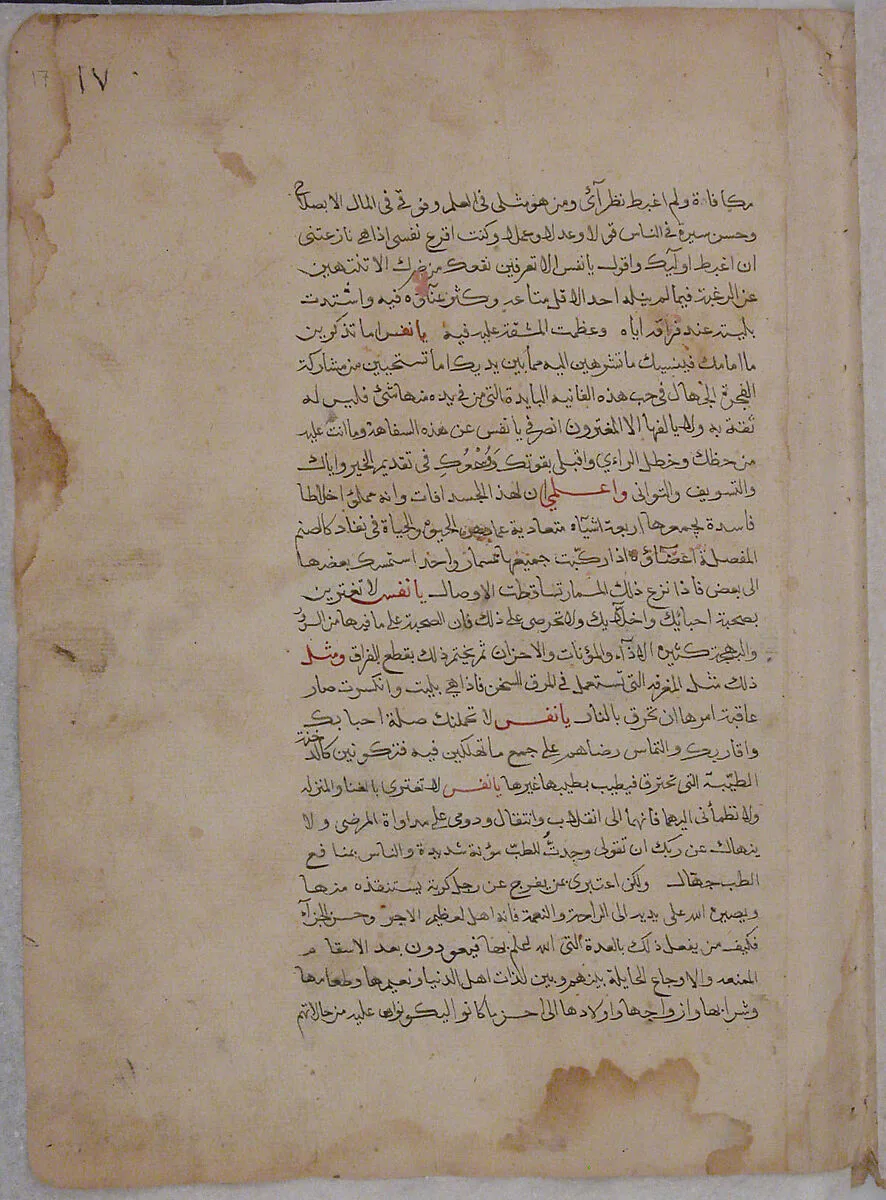 17 ١٧
مكافاة ولم اغبط نظرآئ ومن هو مثلى فى العلم وفوقى فى المال الا بصلاح
وحسن سيرة فى الناس قولا وعدلا وعملا وكنت اقرع نفسى اذا هى نازعتنى
ان اغبط اوليك واقول يا نفس الا تعرفين نفعك من ضرك الا تنتهين
عن الرغبة فيما لم ينله احد الا قل متاعه وكثر عنآوه فيه واشتدت
بليته عند فراقه اياه وعظمت المشقة عليه فيه يا نفس اما تذكرين
ما امامك فينسيك ما تشرهين اليه مما بين يديك اما تستحيين من مشاركة
الفجرة الجهال فى حب هذه الفانيه البايدة التى من فى يده منها شئ فليس له
ثقة به ولا يالفها الا المغترون انصرفى يا نفس عن هذه السفاهة وما انت عليه
من حظك وخطل الراءى واقبلى بقوتك فى تقديم الخير واياك
والتسويف والتوانى واعلمى ان لهذ الجسد افات وانه مملؤ اخلاطا
فاسدة يجمعها اربعة اشيآء متعادية والحياة فى نفاد كالصنم
المفصلة اعضآؤه اذا ركبت جميعها مسمار واحد استمسك بعضها
الى بعض فاذا نزع ذلك المسمار تساقطت الاوصال يا نفس لا تغترين
بصحبة احبائيك واخلآيك ولا تحرصى على ذلك فان الصحبة على ما فيها من السرور
والبهجة كثيرة الاذآء والمؤنات والاحزان ثم يختم ذلك بقطع الفراق ومثل
ذلك مثل المغرفه التى تستعمل فى المرق السخن فاذا هى بليت وانكسرت صار
عاقبة امرها ان تحرق بالنار يا نفس لا تحملنك صلة احبابك
واقاربك والتماس رضاهم على جميع ما تهلكين فيه فتكونين كالدخنة
الطيبة التى تحترق فيطيب بطيبها غيرها يا نفس لا تغترى بالغنا والمنزله
ولا تطمأنى اليهما فانهما الى انقلاب وانتقال ودومى على مداواة المرضى ولا
ينهاك عن ربك ان تقولى وجدت للطب مؤنة شديدة والناس بمنافع
الطب جهال ولكن اعتبرى عن يفرج عن رجل كربة يستنقذه منها
ويصيره الله على يديه الى الراحة والنعمة فانه اهل لعظيم الاجر وحسن الجزآء
فكيف من يفعل ذلك بالعدة التى الله يعلم بها فيعودون بعد الاسقام
والاوجاع الحايلة بينهم وبين لذات اهل الدنيا ونعيمها وطعامها
وشرابها وازواجها واولادها الى احسن ما كانوا ليكونوا عليه من حالاتهم